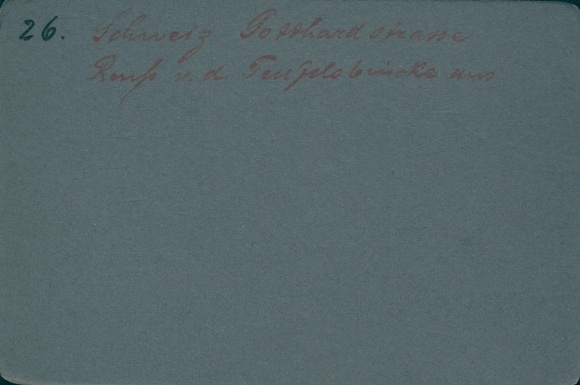 26. Schweiz Gotthardstrasse
Reuß v. d. Teufelsbrücke aus